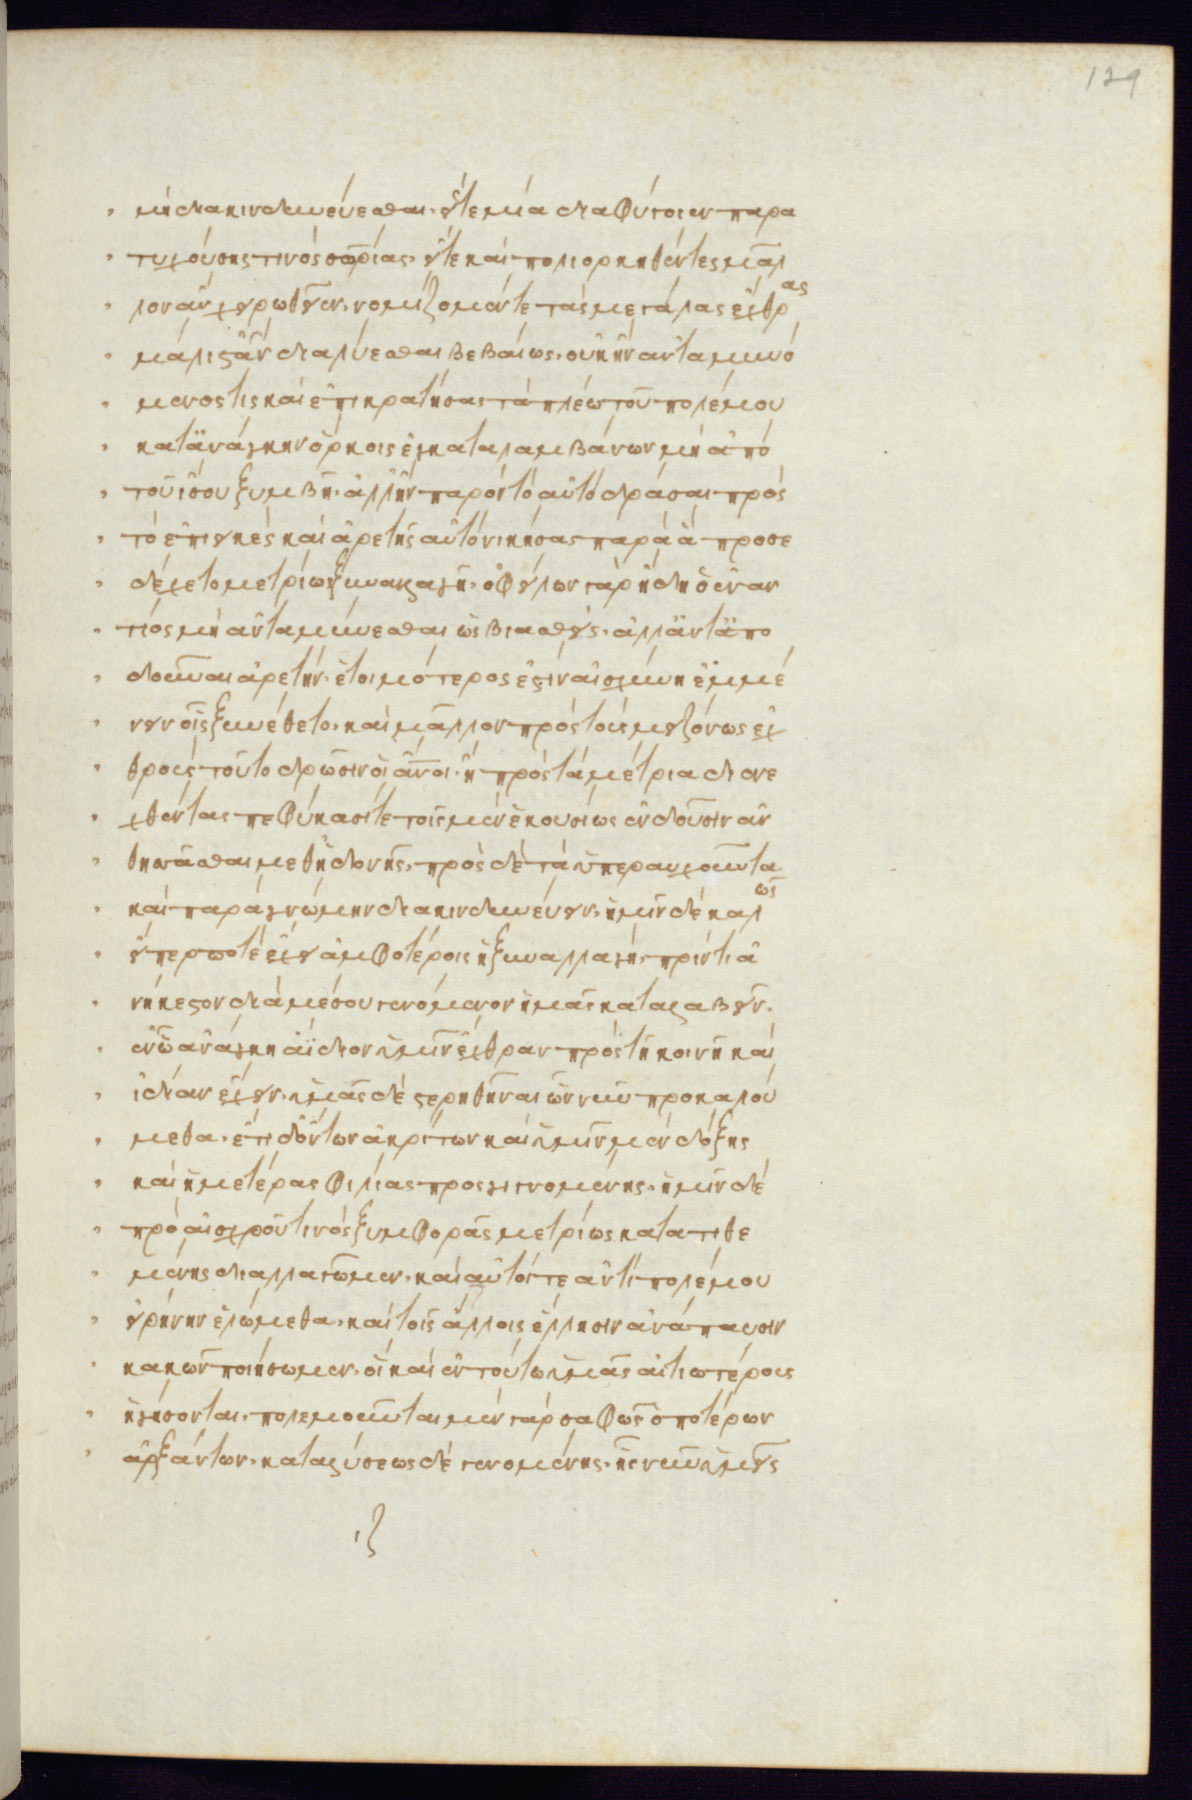 129
μὴ διακινδυνεύεσθαι· εἴτε βίᾳ διαφύγοιεν παρα
τυχούσης τινὸς σωτηρίας· εἴτε καὶ πολιορκηθέντες μᾶλ
λον ἂν χειρωθεῖεν· νομίζομέν τε τὰς μεγάλας ἔχθρας
μάλιστ' ἂν διαλύεσθαι βεβαίως· οὐκ ἢν ἀνταμυνό
μενός τις καὶ ἐπικρατήσας τὰ πλέω τοῦ πολέμου
κατ' ἀνάγκην ὅρκοις ἐγκαταλαμβάνων μὴ ἀπὸ
τοῦ ἴσου ξυμβῇ· ἀλλ' ἢν παρὸν τὸ αὐτὸ δρᾶσαι πρὸς
τὸ ἐπιεικὲς καὶ ἀρετῆ αὐτὸ νικήσας παρὰ ἃ προσε
δέχετο μετρίως ξυναλλαγῇ· ὀφείλων γὰρ ἤδη ὁ ἐναν
τίος μὴ ἀνταμύνεσθαι ὡς βιασθείς· ἀλλ' ἀνταπο
δοῦναι ἀρετήν· ἑτοιμότερός ἐστιν αἰσχύνη ἐμμέ
νειν οἷς ξυνέθετο· καὶ μᾶλλον πρὸς τοὺς μειζόνως ἐχ
θροὺς τοῦτο δρῶσιν οἱ ἄνοι· ἢ πρὸς τὰ μέτρια διενε
χθέντας πεφύκασί τε τοῖς μὲν ἑκουσίως ἐνδοῦσιν ἀν
θησσᾶσθαι μεθ' ἡδονῆς· πρὸς δὲ τὰ ὑπεραυχοῦντα
καὶ παρὰ γνώμην διακινδυνεύειν· ἡμῖν δὲ καλῶς
εἴπερ ποτὲ ἔχει ἀμφοτέροις ἡ ξυναλλαγή· πρίν τι ἀ
νήκεστον διὰ μέσου γενόμενον ἡμᾶς καταλαβεῖν·
ἐν ᾧ ἀνάγκη ἀΐδιον ὑμῖν ἔχθραν πρὸς τῇ κοινῇ καὶ
ἰδίαν ἔχειν· ὑμᾶς δὲ στερηθῆναι ὧν νῦν προκαλού
μεθα· ἔτι δ' ὄντων ἀκρίτων καὶ ὑμῖν μὲν δόξης
καὶ ἡμετέρας φιλίας προσγιγνομένης· ἡμῖν δὲ
πρὸ αἰσχροῦ τινὸς ξυμφορᾶς μετρίως κατατιθε
μένης διαλλαγῶμεν· καὶ αὐτοί τε ἀντὶ πολέμου
εἰρήνην ἑλώμεθα· καὶ τοῖς ἄλλοις ἕλλησιν ἀνάπαυσιν
κακῶν ποιήσωμεν· οἳ καὶ ἐν τούτω ὑμᾶς αἰτιωτέρους
ἡγήσονται· πολεμοῦνται μὲν γὰρ σαφῶς ὁποτέρων
ἀρξάντων· καταλύσεως δὲ γενομένης· ἧς νῦν ὑμεῖς
ιζ